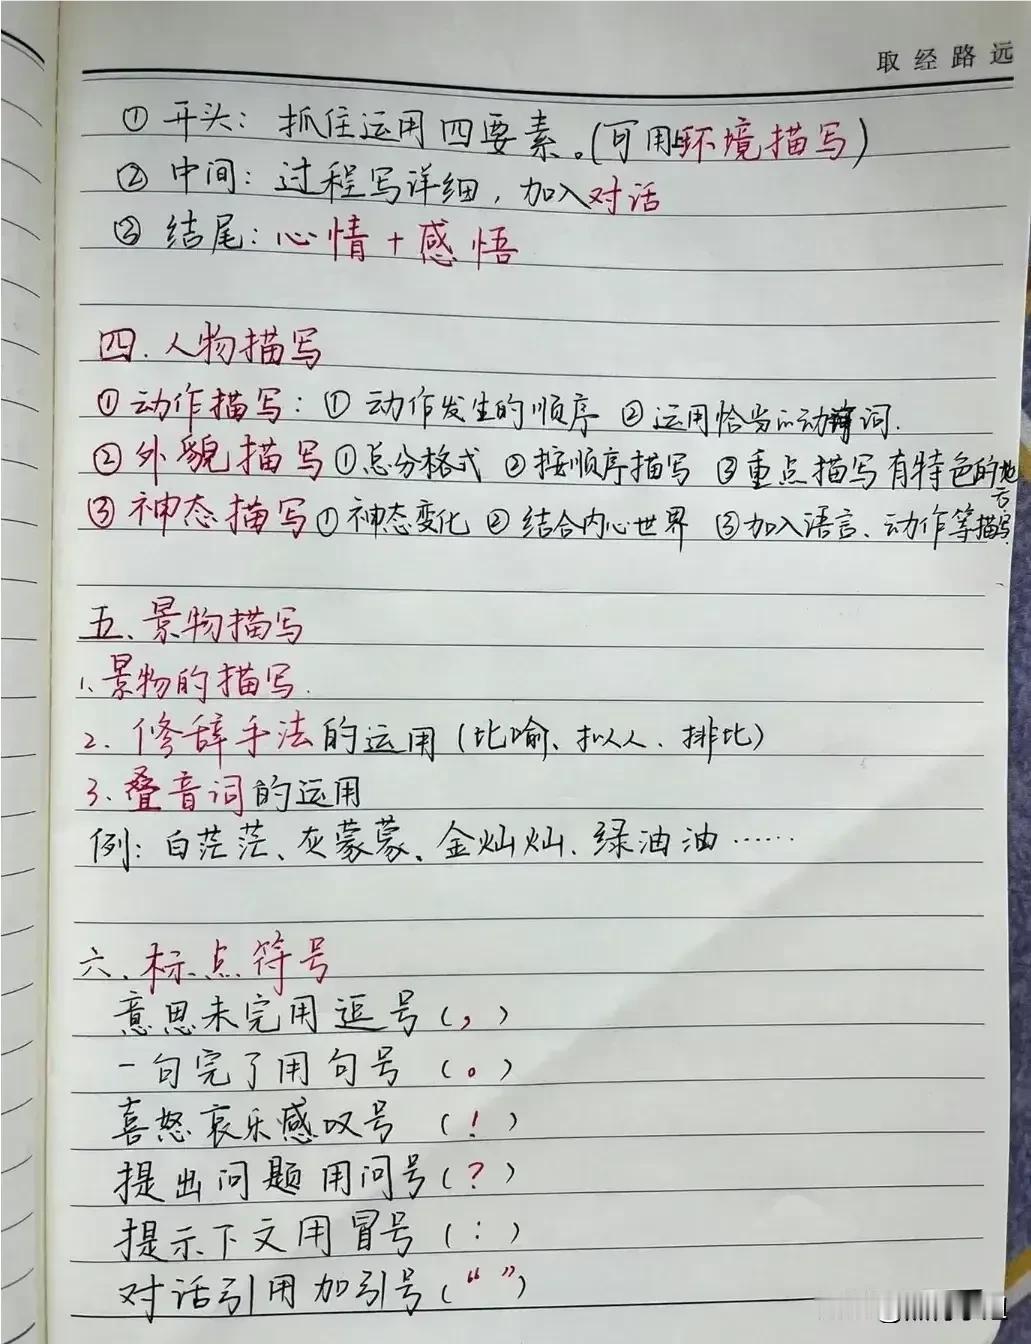 取经路远
① 开头：抓住运用四要素。(可用环境描写)
② 中间：过程写详细，加入对话
③ 结尾：心情+感悟
四.人物描写
①动作描写：① 动作发生的顺序 ② 运用恰当的动词.
②外貌描写①总分格式 ②按顺序描写 ③重点描写有特色的地方
③神态描写①神态变化 ②结合内心世界 ③加入语言、动作等描写
五、景物描写
1.景物的描写.
2.修辞手法的运用(比喻、拟人、排比)
3.叠音词的运用
例：白茫茫、灰蒙蒙、金灿灿、绿油油……
六、标点符号
意思未完用逗号(，)
一句完了用句号(。)
喜怒哀乐感叹号(！)
提出问题用问号(？)
提示下文用冒号(：)
对话引用加引号(“ ”)